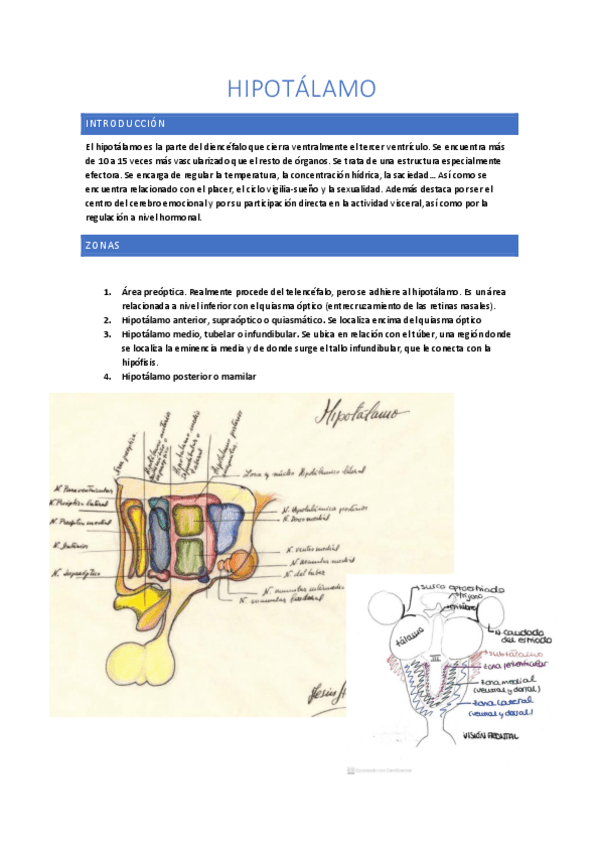 HIPOTÁLAMO
INTRODUCCIÓN
El hipotálamo es la parte del diencéfalo que cierra ventralmente el tercer ventrículo. Se encuentra más
de 10 a 15 veces más vascularizado que el resto de órganos. Se trata de una estructura especialmente
efectora. Se encarga de regular la temperatura, la concentración hídrica, la saciedad... Así como se
encuentra relacionado con el placer, el ciclo vigilia-sueño y la sexualidad. Además destaca por ser el
centro del cerebro emocional y por su participación directa en la actividad visceral, así como por la
regulación a nivel hormonal.
ZONAS
1. Área preóptica. Realmente procede del telencéfalo, pero se adhiere al hipotálamo. Es un área
relacionada a nivel inferior con el quiasma óptico (entrecruzamiento de las retinas nasales).
2. Hipotálamo anterior, supraóptico o quiasmático. Se localiza encima del quiasma óptico
3. Hipotálamo medio, tubelar o infundibular. Se ubica en relación con el túber, una región donde
se localiza la eminencia media y de donde surge el tallo infundibular, que le conecta con la
hipófisis.
4. Hipotálamo posterior o mamilar
Hipotálamo
Área preóptica
Hipotálamo anterior
Hipotálamo medio
Hipotálamo posterior
Zona y núcleo Hipotálamico lateral
N. Paraventricular
N. Preóptico lateral
N. Preóptico medial
N. Anterior
N. Supraóptico
N. Hipotalámico posterior
N. Dorsomedial
N. ventromedial
N. del tuber
N. mamilar
Jesús
tálamo
III
N. caudado
subtálamo
zona periventricular
zona medial
(ventral y dorsal)
zona lateral
(ventral y dorsal)
VISIÓN FRONTAL